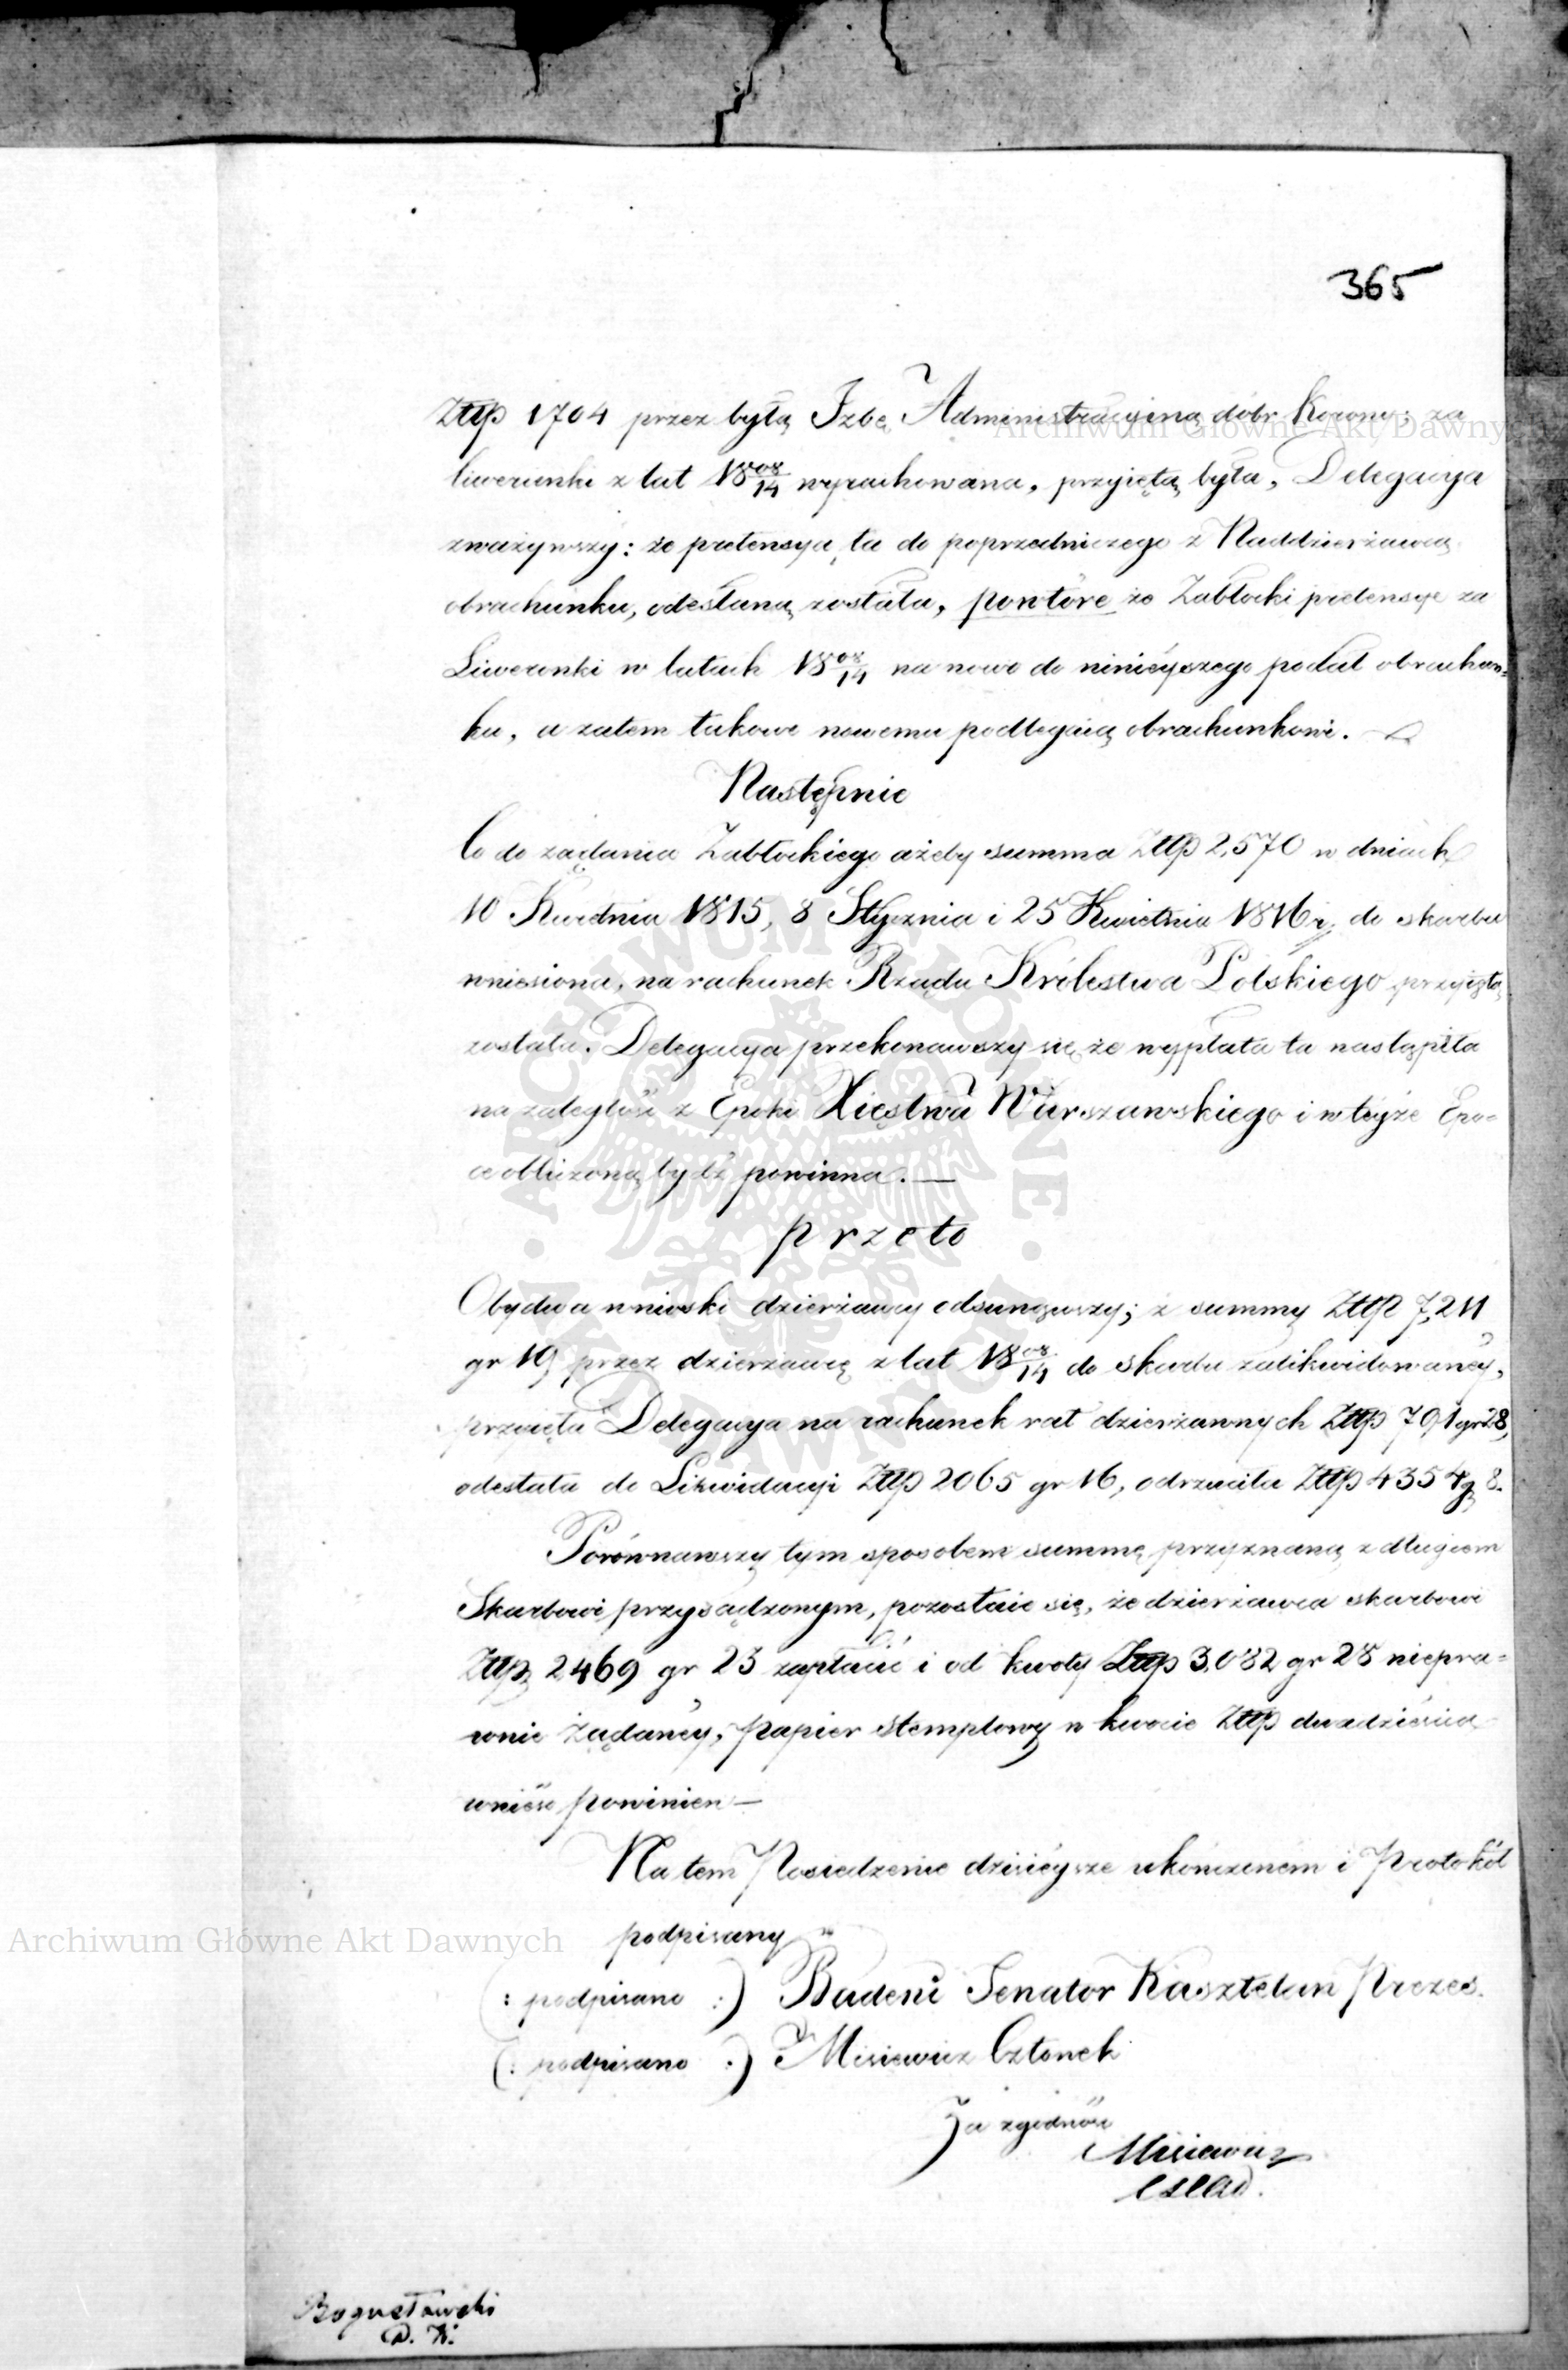 365
Złłp 1704 przez byłą Izbę Administracyiną dóbr Koronn: za
liwerunki z lat 18 08/14 wyrachowana, przyiętą była, Delegacya
zważywszy: że pretensya ta do poprzedniczego z Naddzierżawcą
obrachunku, odesłaną została, powtóre że Zabłocki pretensye za
Liwerunki w latach 18 08/14 na nowo do ninieyszego podał obrachun-
ku, a zatem takowe nowemu podlegaią obrachunkowi. —
Następnie
Co do żądania Zabłockiego ażeby summa Złłp 2,570 w dniach
10 Kwietnia 1815, 8 Stycznia i 25 Kwietnia 1816 r. do skarbu
wniesiona, na rachunek Rządu Królestwa Polskiego przyiętą
została. Delegacya przekonawszy się że wypłata ta nastąpiła
na zaległość z Epoki Xięstwa Warszawskiego i w teyże Epo-
ce obliczoną bydź powinna. —
przeto
Obydwa wnioski dzierżawcy odsunąwszy; z summy Złłp 7,211
gr 19 przez dzierżawcę z lat 18 08/14 do skarbu zalikwidowaney,
przyięła Delegacya na rachunek rat dzierżawnych Złłp 791 gr 28,
odesłała do Likwidacyi Złłp 2065 gr 16, odrzuciła Złłp 4354 g 8.
Porównawszy tym sposobem summę przyznaną z długiem
Skarbowi przysądzonym, pozostaie się, że dzierżawca skarbowi
Złłp 2469 gr 23 zapłacić i od kwoty Złłp 3,082 gr 28 niepra-
wnie żądaney, papier stemplowy w kwocie Złłp dwadzieścia
wnieść powinien —
Na tem Posiedzenie dzisieysze ukończonem i Protokół
podpisany
(: podpisano :) Badeni Senator Kasztelan Prezes.
(: podpisano :) Misiewicz Członek
Za zgodność
Misiewicz
Bogusławski
Archiwum Główne Akt Dawnych
Archiwum Główne Akt Dawnych
ARCHIWUM GŁÓWNE AKT DAWNYCH